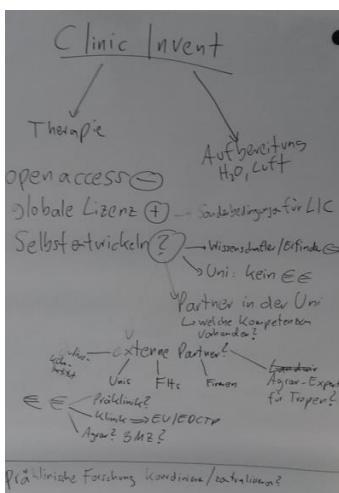 Clinic Invent
Therapie
Aufbereitung
H₂O, Luft
open access ⊖
globale Lizenz ⊕ Sonderbedingungen für LIC
Selbst entwickeln ?
→ Wissenschaftler/Erfinder ⊖
→ Uni: kein €€
Partner in der Uni
↳ welche Kompetenzen
vorhanden?
externe Partner?
Unis FHs Firmen
Agrar-Expert
für Tropen?
€ €
Präklinik?
Klinik ⇒ EU/EDCTP
Agrar? BMZ?
Präklinische Forschung koordinieren/zentralisieren?